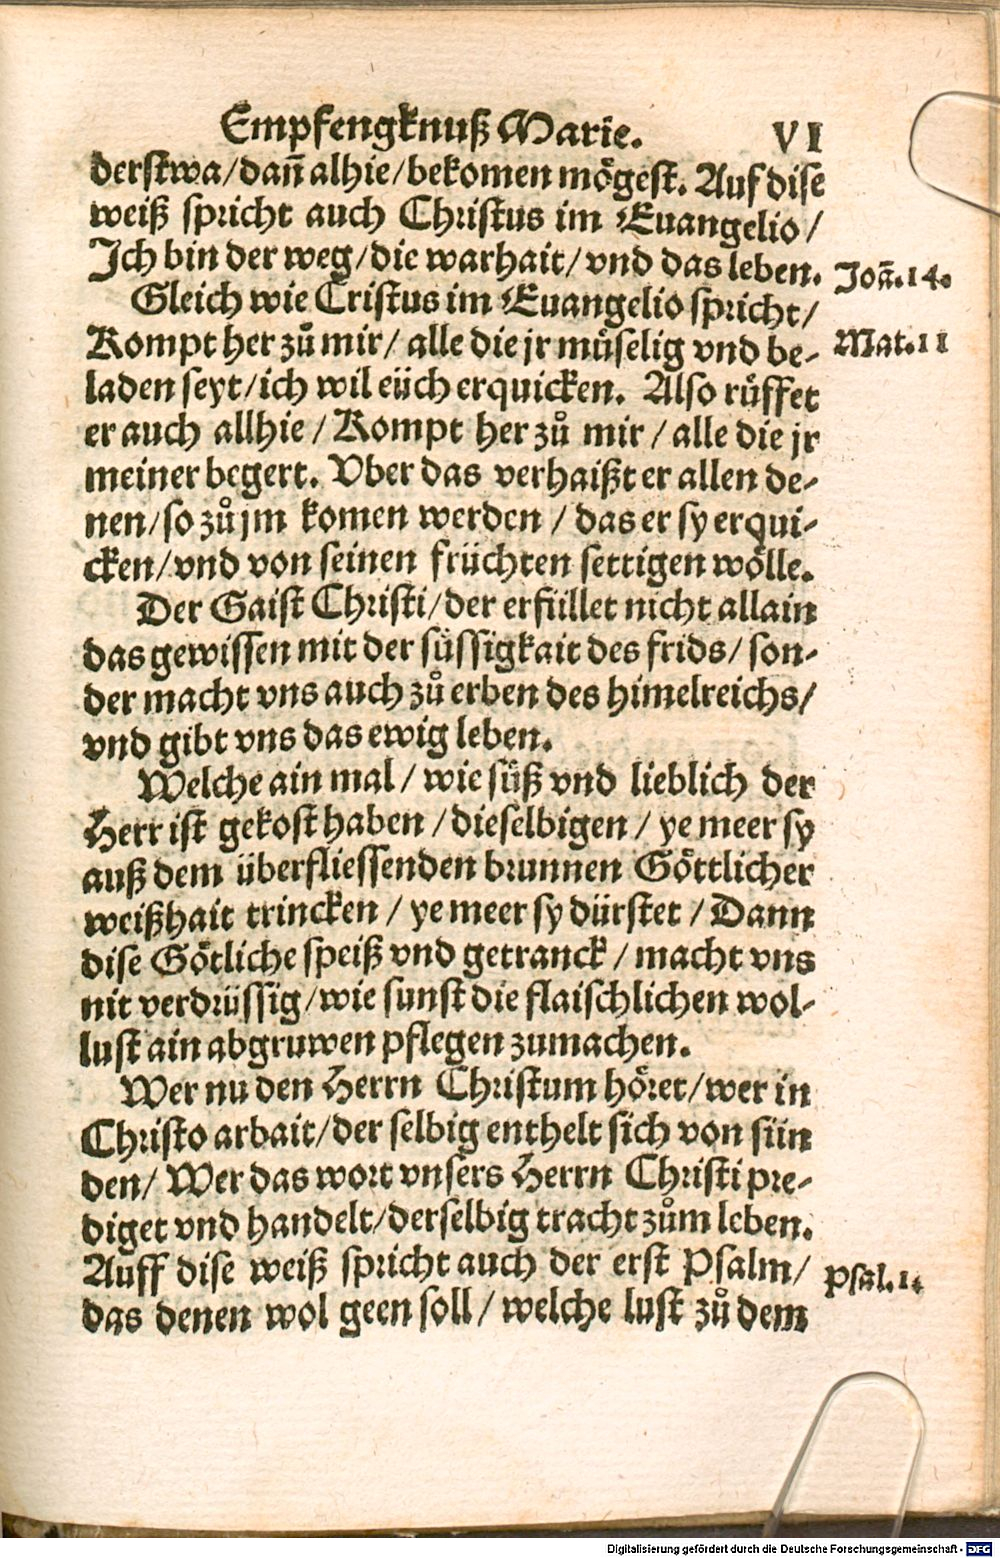 Empfengknuß Marie. VI
derstwa/dañ alhie/bekomen mögest. Auf dise
weiß spricht auch Christus im Euangelio/
Ich bin der weg/die warhait/vnd das leben. Joā.14.
Gleich wie Cristus im Euangelio spricht/
Kompt her zů mir/ alle die jr müselig vnd be- Mat.11
laden seyt/ich wil eüch erquicken. Also rüffet
er auch allhie / Kompt her zů mir / alle die jr
meiner begert. Vber das verhaißt er allen de-
nen/so zů jm komen werden / das er sy erqui-
cken/vnd von seinen früchten settigen wölle.
Der Gaist Christi/der erfüllet nicht allain
das gewissen mit der süssigkait des frids/ son-
der macht vns auch zů erben des himelreichs/
vnd gibt vns das ewig leben.
Welche ain mal / wie süß vnd lieblich der
Herr ist gekost haben / dieselbigen / ye meer sy
auß dem überfliessenden brunnen Göttlicher
weißhait trincken / ye meer sy dürstet / Dann
dise Götliche speiß vnd getranck / macht vns
nit verdrüssig/wie sunst die flaischlichen wol-
lust ain abgruwen pflegen zumachen.
Wer nu den Herrn Christum höret/wer in
Christo arbait/der selbig enthelt sich von sün
den/ Wer das wort vnsers Herrn Christi pre-
diget vnd handelt/derselbig tracht zům leben.
Auff dise weiß spricht auch der erst Psalm/ Psal.1.
das denen wol geen soll / welche lust zů dem
Digitalisierung gefördert durch die Deutsche Forschungsgemeinschaft - DFG